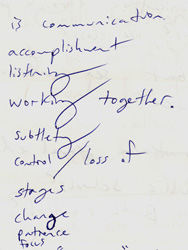 is communication
accomplishment
listening
working together.
subtlety
control / loss of
stages
change
patience
focus